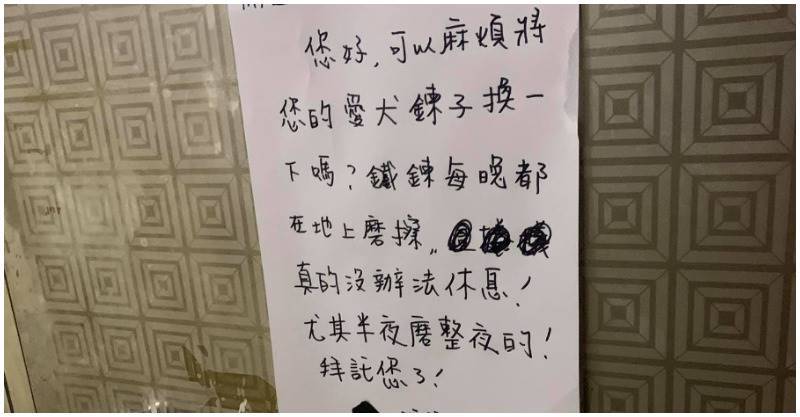 您好,可以麻煩將
您的愛犬鍊子換一
下嗎?鐵鍊每晚都
在地上磨擦,,
真的沒辦法休息!
尤其半夜磨整夜的!
拜託您了!